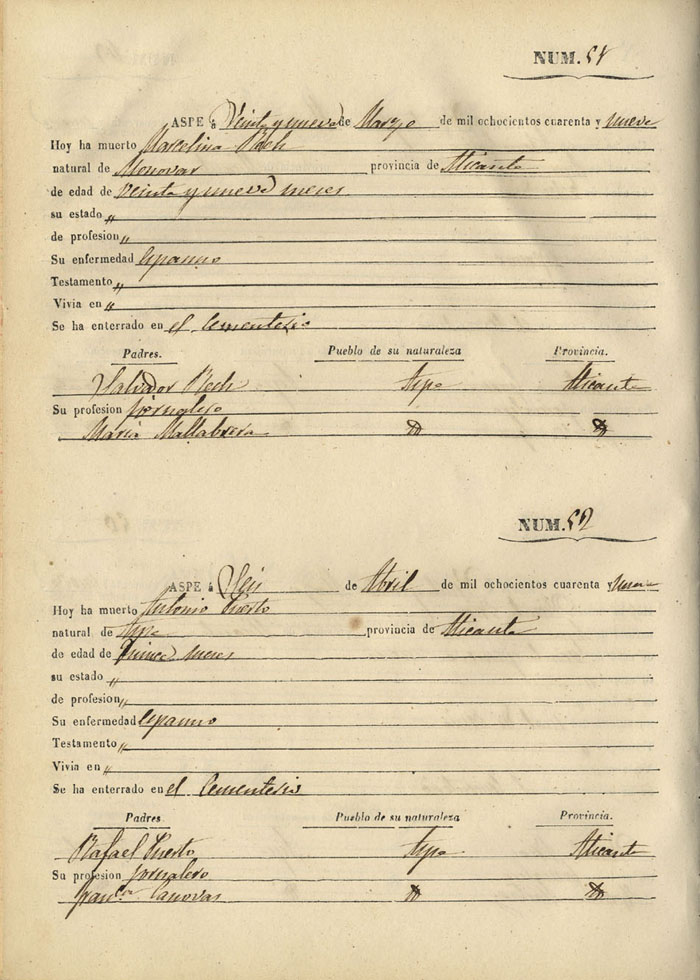 NUM. 51
ASPE á Veinte y nueve de Marzo de mil ochocientos cuarenta y nueve
Hoy ha muerto Marcelina Rech
natural de Monovar provincia de Alicante
de edad de veinte y nueve meses
su estado "
de profesion "
Su enfermedad Espasmo
Testamento "
Vivia en "
Se ha enterrado en el Cementerio
Padres. Pueblo de su naturaleza Provincia.
Salvador Rech Aspe Alicante
Su profesion jornalero
Maria Mallebrera
NUM. 52
ASPE á Seis de Abril de mil ochocientos cuarenta nueve
Hoy ha muerto Antonio Puerto
natural de Aspe provincia de Alicante
de edad de Quince meses
su estado "
de profesion "
Su enfermedad Espasmo
Testamento "
Vivia en "
Se ha enterrado en el Cementerio
Padres. Pueblo de su naturaleza Provincia.
Rafael Puerto Aspe Alicante
Su profesion jornalero
Fran.ca Canovas